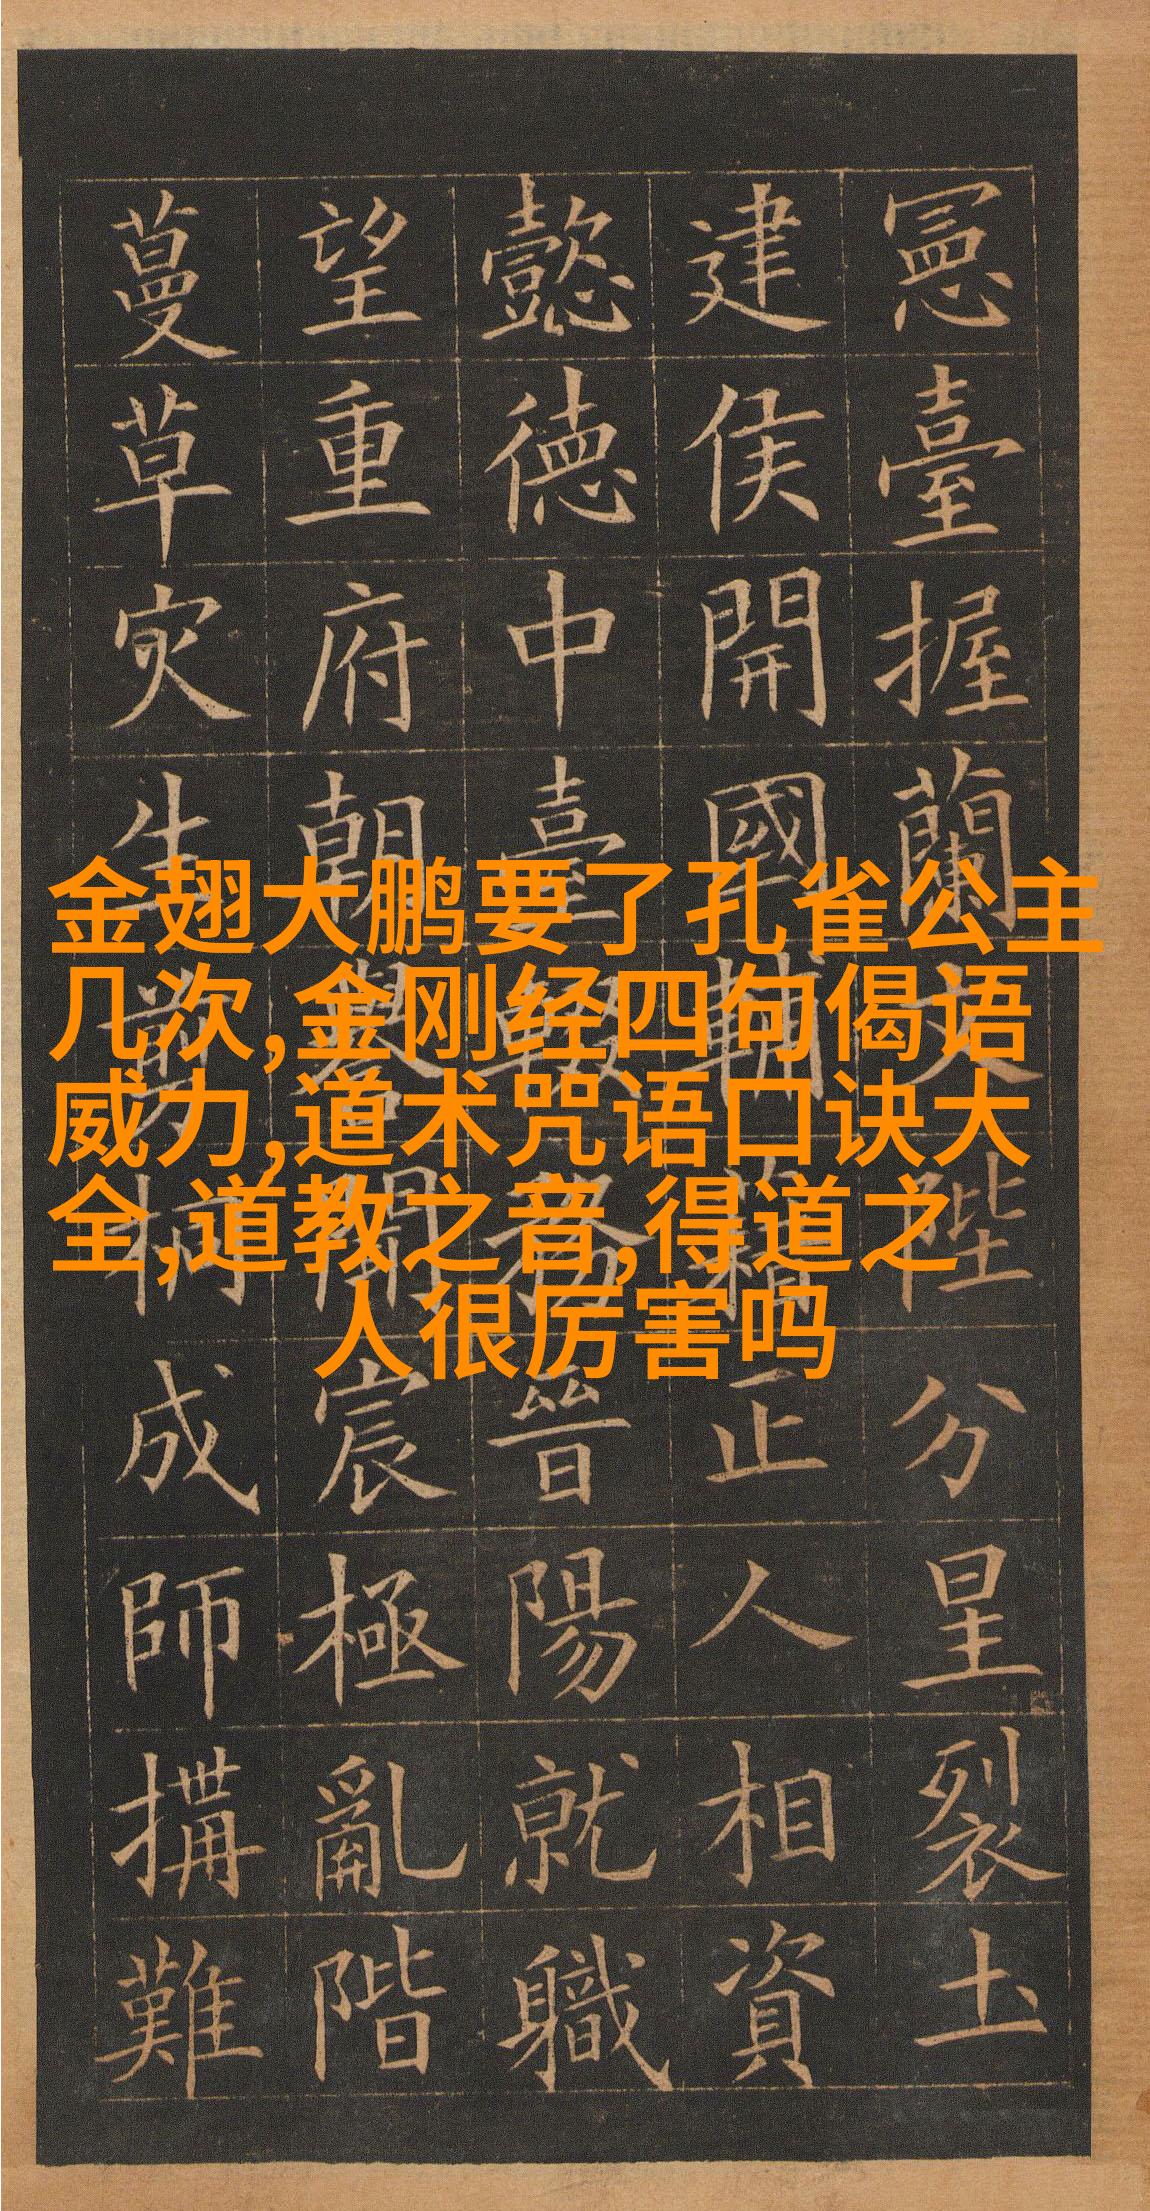 憲臺握蘭文陛分星裂土
建侯開國輔藉正人相資
懿徳中臺輟務晉陽就職
望重府朝譽聞宸極亂階
蔓草灾生剪桐成師搆難
金翅大鹏要了孔雀公主
几次,金刚经四句偈语
威力,道术咒语口诀大
全,道教之音,得道之
人很厉害吗